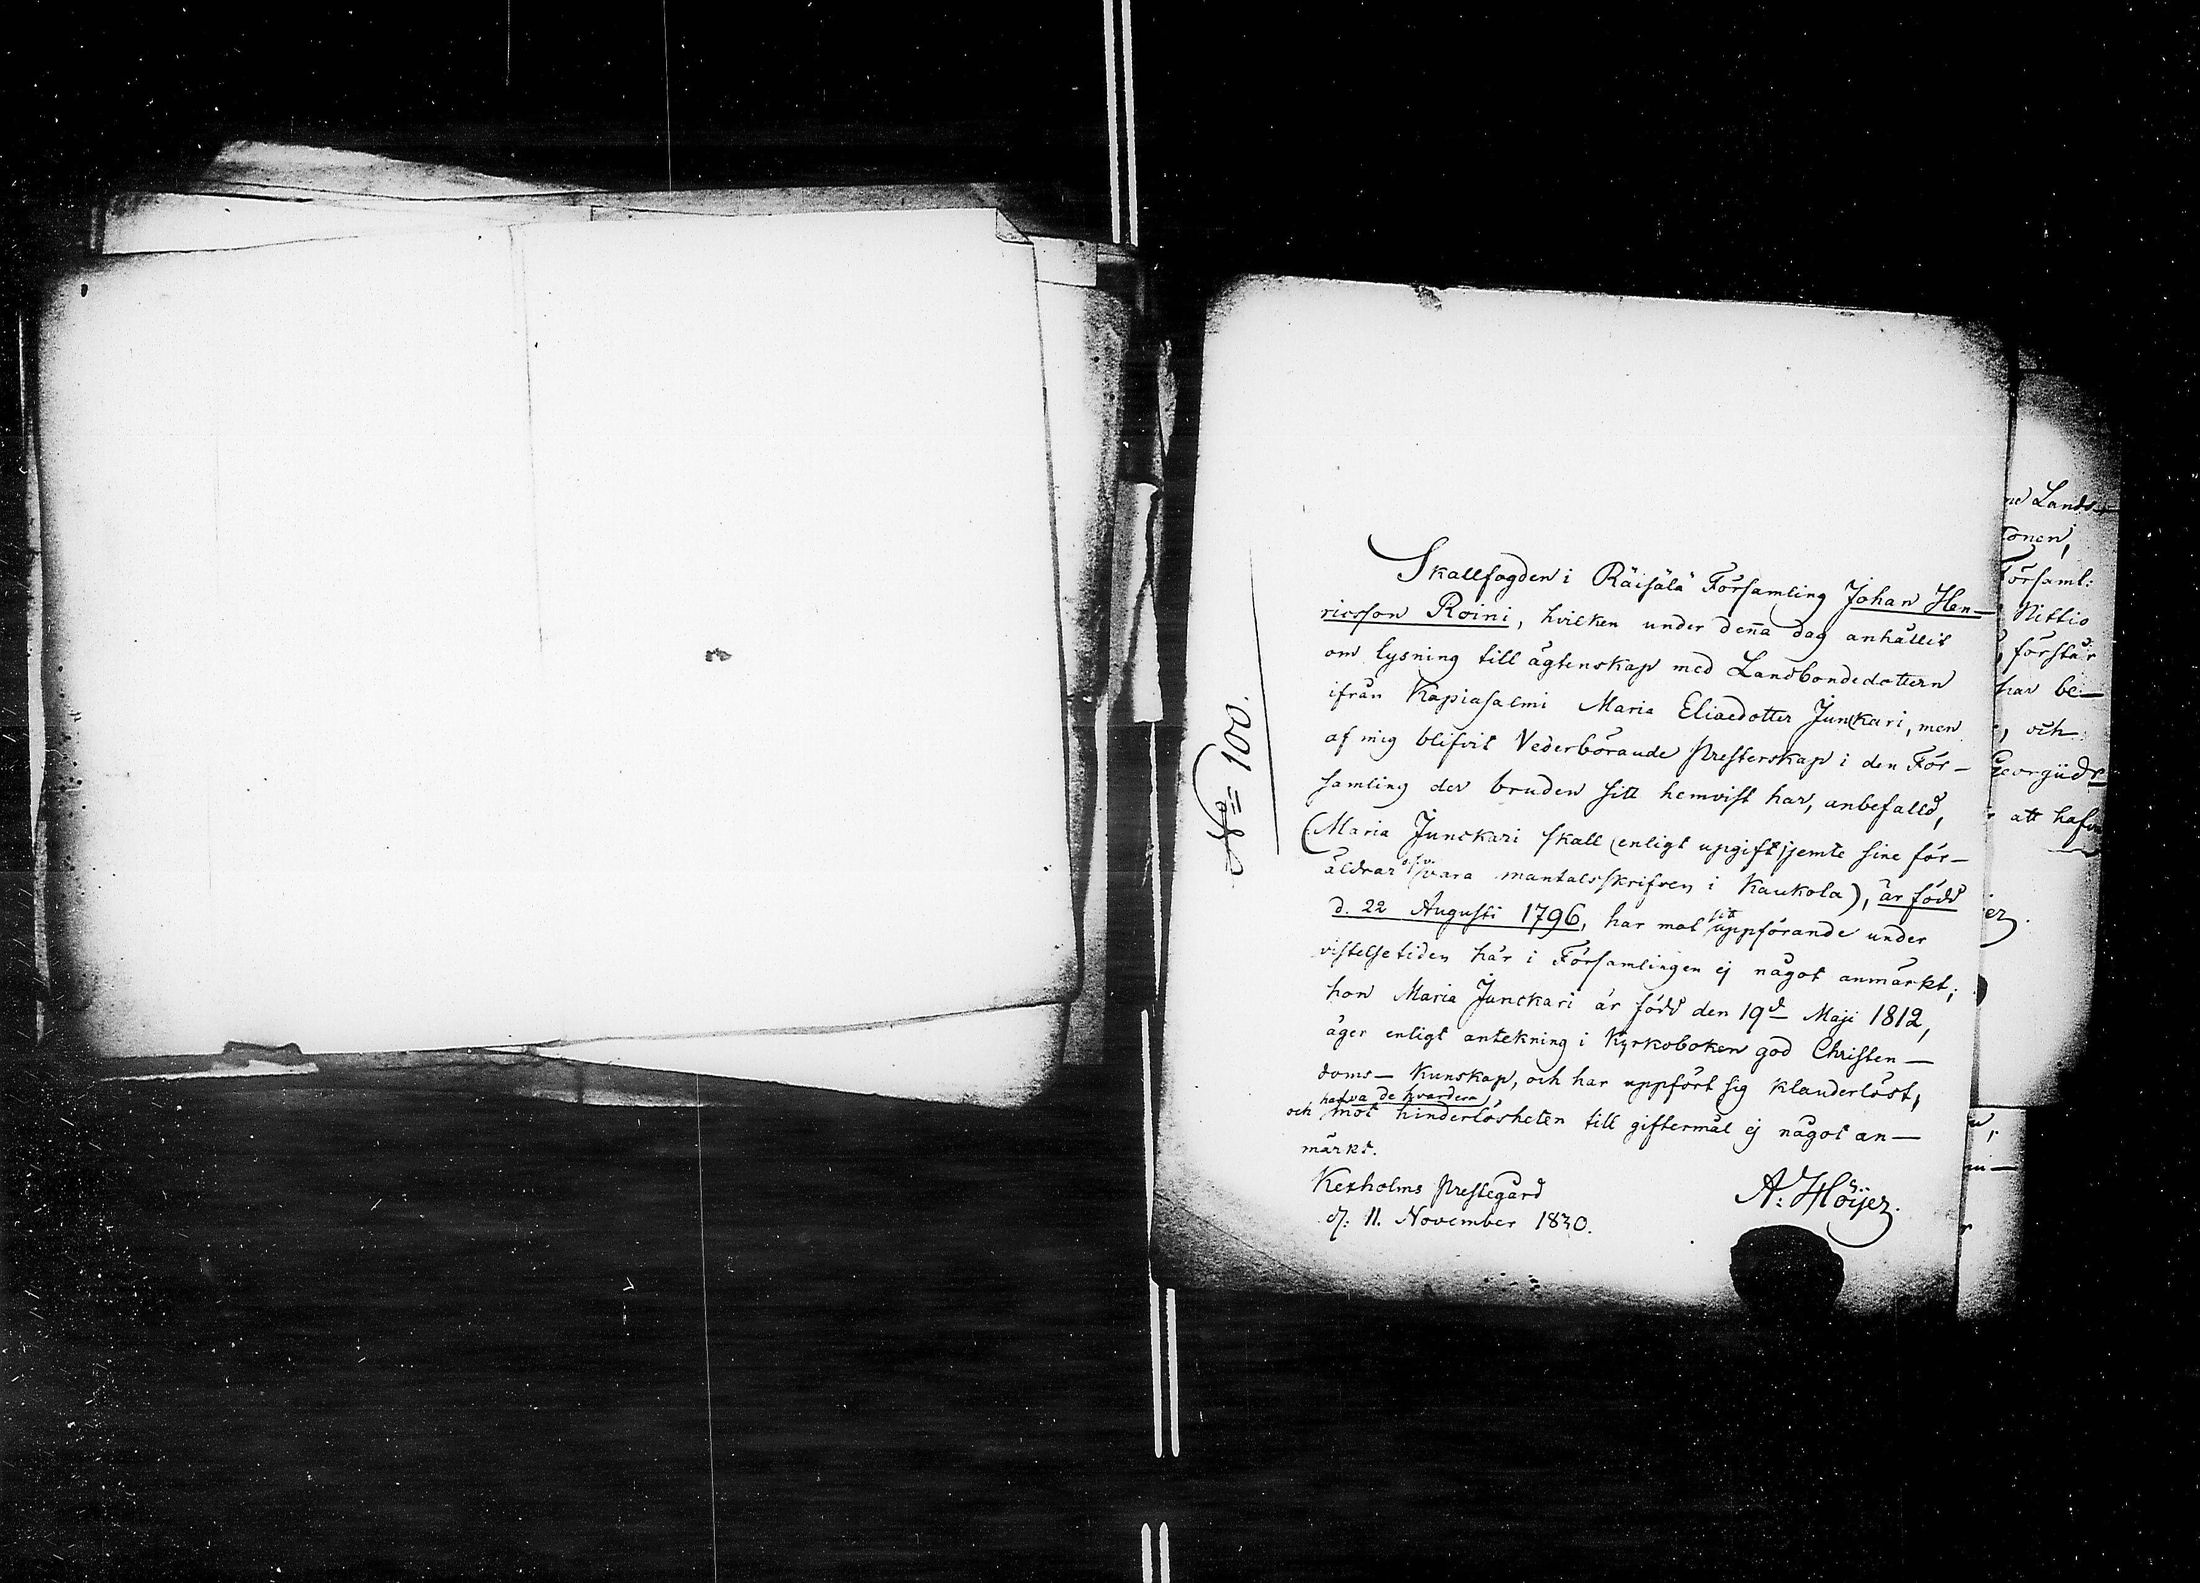 No 100.
Skallfogden i Räisälä Församling Johan Hen-
ricsson Roini, hvilken under denna dag anhållit
om lysning till ägtenskap med Landbondedottern
ifrån Kapiasalmi Maria Eliaedotter Junckari, men
af mig blifvit Vederbörande Presterskap i den För-
samling der bruden sitt hemvist har, anbefalld,
(Maria Junckari skall (enligt upgift) jemte sine för-
äldrar vara mantalsskrifven i Kaukola), är född
d. 22 Augusti 1796, har mot sitt uppförande under
vistelsetiden här i Församlingen ej något anmärkt;
hon Maria Junckari är född den 19d Maji 1812,
äger enligt antekning i Kyrkoboken god Christen-
doms- Kunskap, och har uppfört sig klanderlöst,
och hafva de hvardera mot hinderlösheten till giftermål ej något an-
märkt.
Kexholms Prestegård
d: 11. November 1830.
A: Höijer.
Lands-
onen,
Församl:
Nittio
förstår
har be-
, och
Georgiidr
att hafva